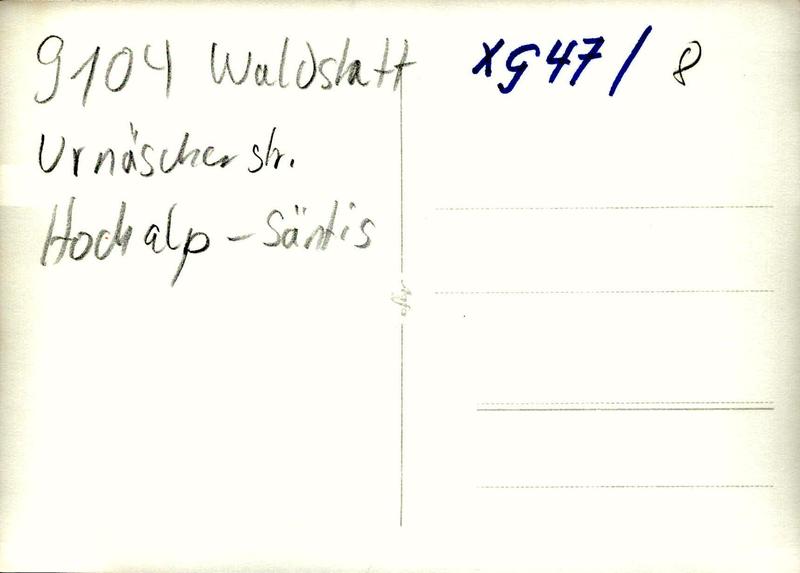 9104 Waldstatt
Urnäscherstr.
Hochalp - Säntis
XG47/8
Agfa